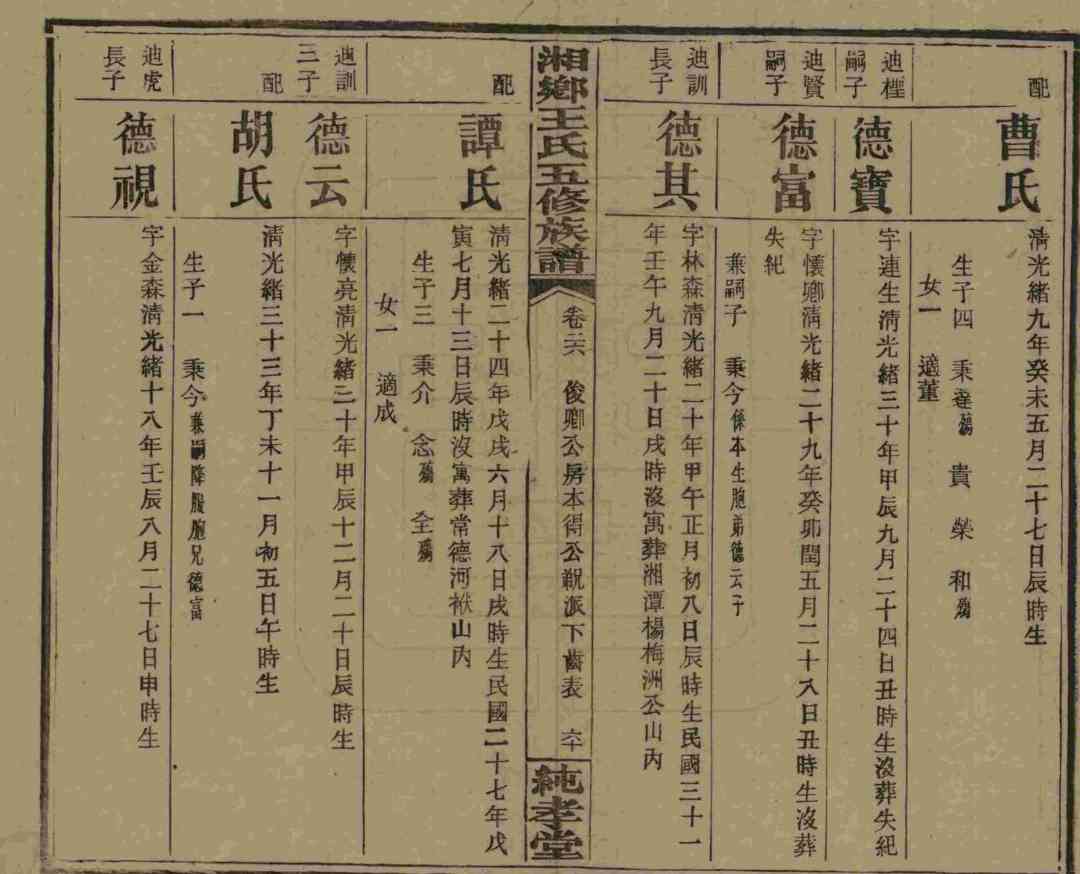 配
曹氏
清光緒九年癸未五月二十七日辰時生
生子四 秉達殤 貴 榮 和殤
女一 適董
迪樫
嗣子
德寶
字連生清光緒三十年甲辰九月二十四日丑時生沒葬失紀
迪賢
嗣子
德富
字懷卿清光緒二十九年癸卯閏五月二十八日丑時生沒葬
失紀
兼嗣子 秉今係本生胞弟德云子
迪訓
長子
德其
字林森清光緒二十年甲午正月初八日辰時生民國三十一
年壬午九月二十日戌時沒寓葬湘潭楊梅洲公山內
湘鄉王氏五修族譜
卷六 俊卿公房本得公派下齒表 六十
純孝堂
配
譚氏
清光緒二十四年戊戌六月十八日戌時生民國二十七年戊
寅七月十三日辰時沒寓葬常德河洑山內
生子三 秉介 念殤 全殤
女一 適成
迪訓
三子
德云
字懷亮清光緒三十年甲辰十二月二十日辰時生
配
胡氏
清光緒三十三年丁未十一月初五日午時生
生子一 秉今兼嗣降服胞兄德富
迪虎
長子
德視
字金森清光緒十八年壬辰八月二十七日申時生